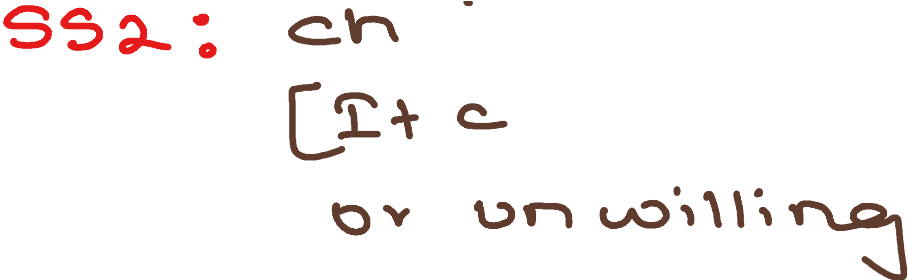 SS2: ch
[It c
or unwilling